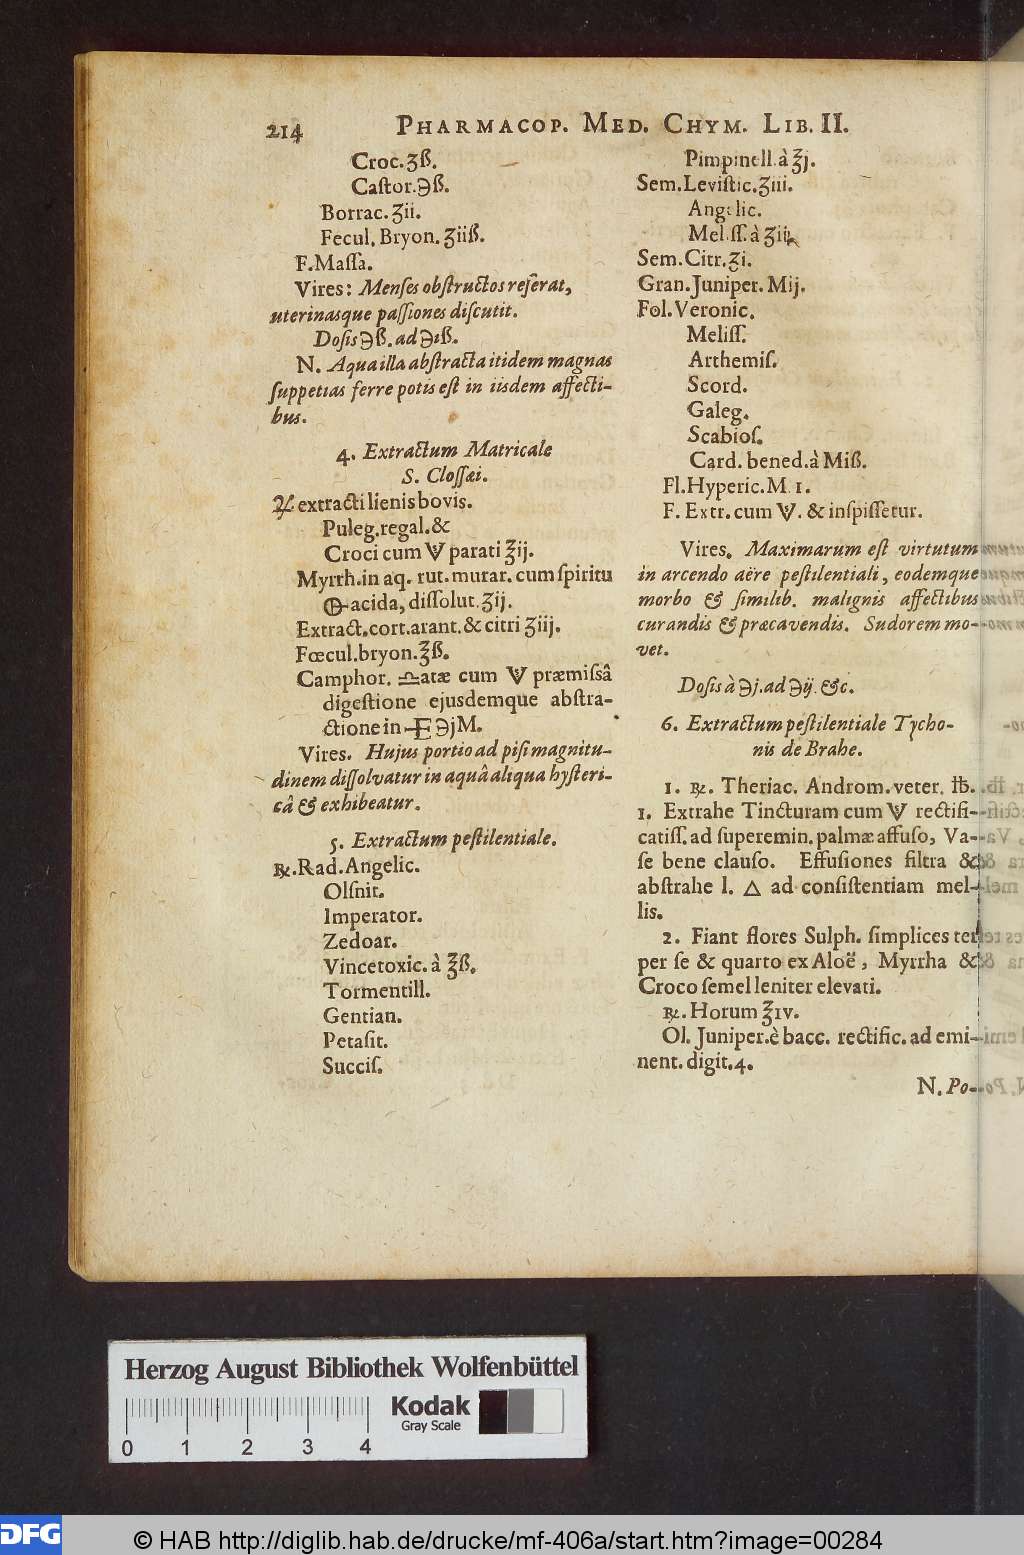 214 PHARMACOP. MED. CHYM. LIB. II.
Croc. ʒß.
Caſtor. ℈ß.
Borrac. ʒii.
Fecul. Bryon. ʒiiß.
F. Maſſa.
Vires: Menſes obſtructos reſerat,
uterinasque paſſiones diſcutit.
Doſis ℈ß. ad ℈ıß.
N. Aqua illa abſtracta itidem magnas
ſuppetias ferre potis eſt in iisdem affecti-
bus.
4. Extractum Matricale
S. Cloſſæi.
♃ extracti lienis bovis.
Puleg. regal. &
Croci cum 🜈 parati ℥ij.
Myrrh. in aq. rut. murar. cum ſpiritu
acida, diſſolut. ʒij.
Extract. cort. arant. & citri ʒiij.
Fœcul. bryon. ℥ß.
Camphor. ♎atæ cum 🜈 præmiſsâ
digeſtione ejusdemque abſtra-
ctione in ℈j M.
Vires. Hujus portio ad piſi magnitu-
dinem diſſolvatur in aquâ aliqua hyſteri-
câ & exhibeatur.
5. Extractum peſtilentiale.
℞. Rad. Angelic.
Olſnit.
Imperator.
Zedoar.
Vincetoxic. à ℥ß.
Tormentill.
Gentian.
Petaſit.
Succiſ.
Pimpinell. à ℥j.
Sem. Leviſtic. ʒiii.
Angelic.
Meliſſ. à ʒii.
Sem. Citr. ʒi.
Gran. Juniper. Mij.
Fol. Veronic.
Meliſſ.
Arthemiſ.
Scord.
Galeg.
Scabioſ.
Card. bened. à Miß.
Fl. Hyperic. M 1.
F. Extr. cum 🜈. & inſpiſſetur.
Vires. Maximarum eſt virtutum
in arcendo aëre peſtilentiali, eodemque
morbo & ſimilib. malignis affectibus
curandis & præcavendis. Sudorem mo-
vet.
Doſis à ℈j. ad ℈ij. &c.
6. Extractum peſtilentiale Tycho-
nis de Brahe.
1. ℞. Theriac. Androm. veter. ℔.
1. Extrahe Tincturam cum 🜈 rectifi-
catiſſ. ad ſuperemin. palmæ affuſo, Va-
ſe bene clauſo. Effuſiones filtra &
abſtrahe l. △ ad conſiſtentiam mel-
lis.
2. Fiant flores Sulph. ſimplices ter
per ſe & quarto ex Aloë, Myrrha &
Croco ſemel leniter elevati.
℞. Horum ℥ıv.
Ol. Juniper. è bacc. rectific. ad emi-
nent. digit. 4.
N. Po-
Herzog August Bibliothek Wolfenbüttel
Kodak
Gray Scale
0 1 2 3 4
DFG
© HAB http://diglib.hab.de/drucke/mf-406a/start.htm?image=00284